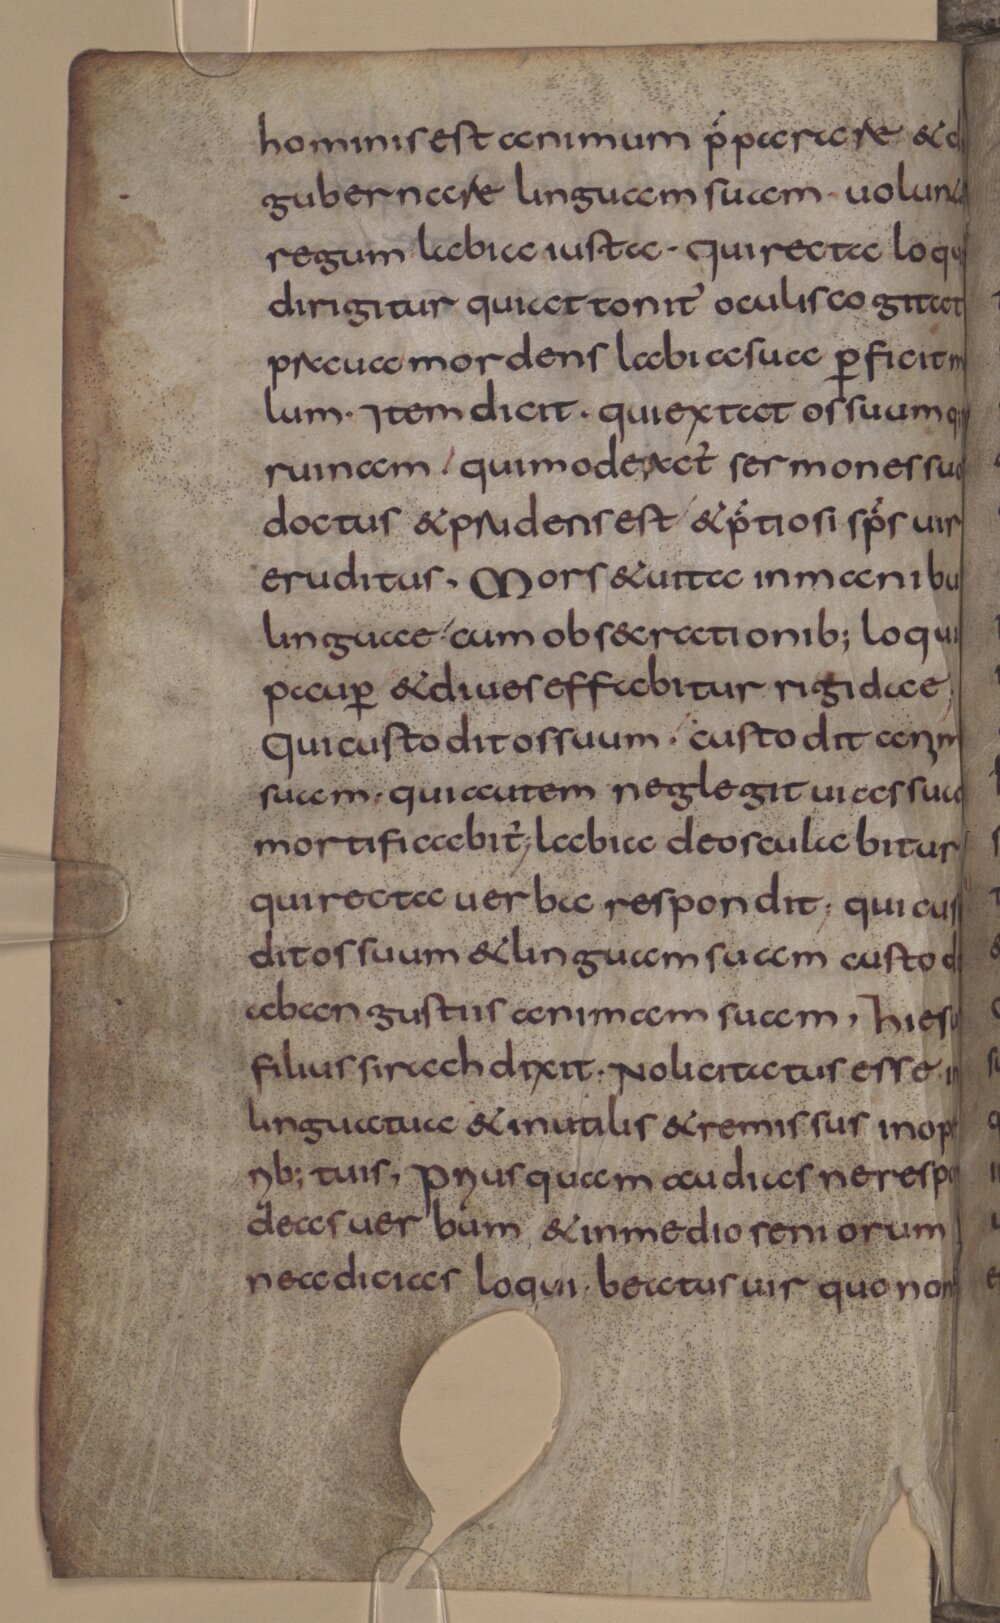 hominis est animum p̄parare & d
gubernare linguam suam. uolunta
regum labia iusta. Qui recta loqu
dirigitur qui attonit̾ oculis cogitat
praua mordens labia sua ꝑficit m
lum. Item dicit. qui ex tat os suum q
ruinam. qui moderat̾ sermones suo
doctus & prudens est & p̄tiosi sp̄s uir
eruditus. Mors & uita in manibu
linguae cum obs&rationib; loqui
paup & diues effabitur rigidae,
Qui custodit os suum. custodit anim
suam. qui autem neglegit uias sua
mortificabit̾; labia deosculabitur
qui recta uerba respondit. qui cus
dit os suum & linguam suam custod
ab angustiis animam suam, hiesu
filius sirach dixit. Noli citatus esse in
lingua tua & inutilis & remissus in op
rib; tuis, Priusquam audias ne respo
deas uerbum & in medio seniorum
ne adicias loqui. beatus uir quo non